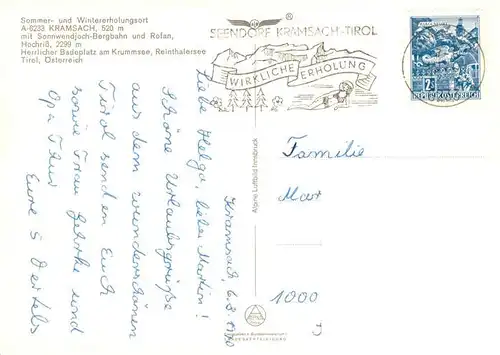 Sommer- und Wintererholungsort
A-6233 KRAMSACH, 520 m
mit Sonnwendjoch-Bergbahn und Rofan,
Hochriß, 2299 m
Herrlicher Badeplatz am Krummsee, Reinthalersee
Tirol, Österreich
SEENDORF KRAMSACH-TIROL
WIRKLICHE ERHOLUNG
REPUBLIK ÖSTERREICH
Kramsach, 6.8.
Liebe Helga, lieber Martin!
Schöne Urlaubsgrüße
aus dem wunderschönen
Tirol senden Euch
sowie Frau Gehrke und
Opa
Eure 5
Alpine Luftbild Innsbruck
Familie
Mar
1000